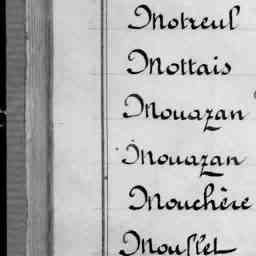 Motreul
Mottais
Mouazan
Mouazan
Mouchère
Mouslet